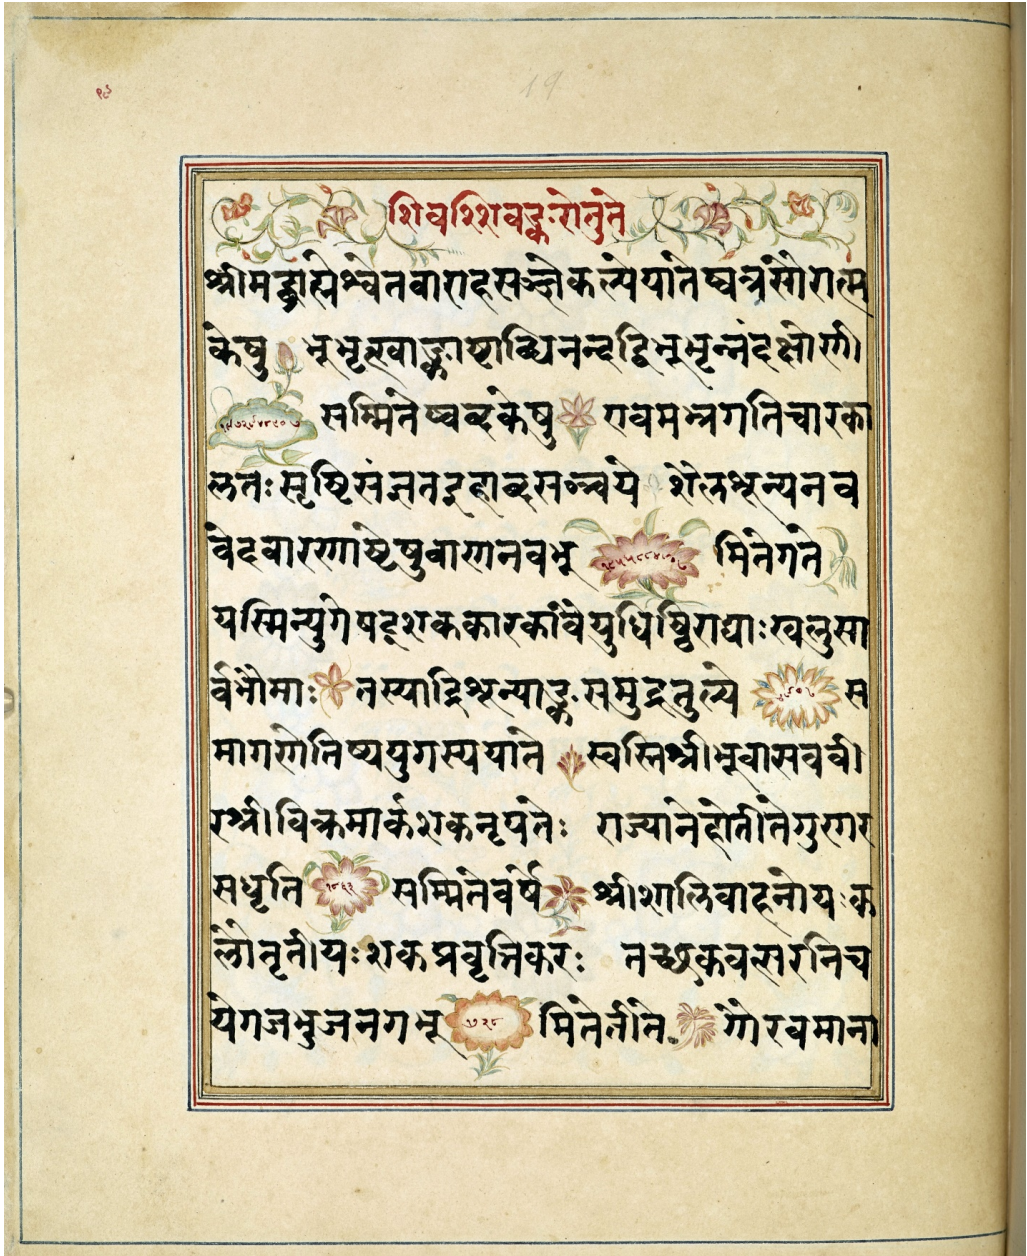 १९
19
शिवश्शिवङ्करोतुते
श्रीमद्ब्राह्मेश्वेतवाराहसञ्ज्ञेकल्पेयातेष्वत्रसौरात्म
केषु भूभृत्खाङ्काष्टाब्धिनन्दद्विभूभृन्नंदक्षोणी।
सम्मितेष्वब्दकेषु एवमत्रगतिचारका
लतः सृष्टिसंज्ञतदृहाब्दसञ्चये शैलशून्यनव
वेदवारणाष्टेषुबाणनवभू मितेगते
यस्मिन्युगेषट्शककारकांवैयुधिष्ठिराद्याः खलुसा
र्वभौमाः तस्याद्रिशून्याङ्कसमुद्रतुल्ये ४९०७ स
मागणेतिष्ययुगस्ययाते स्वस्तिश्रीभूवासववी
रश्रीविक्रमार्कशकनृपतेः राज्यानेहोतीतेगुणर
सधृति १८६३ सम्मितेवर्षे श्रीशालिवाहनीयः क
लौतृतीयः शकप्रवृत्तिकरः तच्छकवत्सरनिच
येगजभुजनगभू १७२८ मितेतीते गौरवमाना